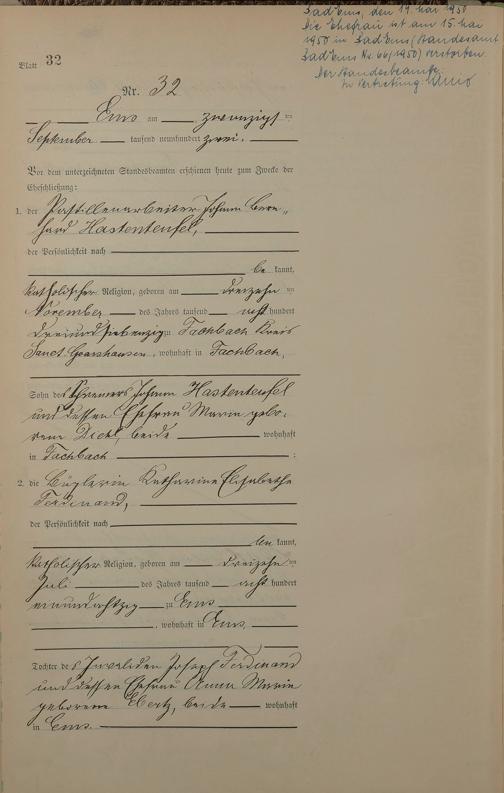 Bad Ems, den 19. Mai 1950
Die Ehefrau ist am 15. Mai
1950 in Bad Ems (Standesamt
Bad Ems Nr. 66/1950) verstorben.
Der Standesbeamte
In Vertretung
Blatt 32
Nr. 32
Ems am zwanzigsten
September tausend neunhundert zwei.
Vor dem unterzeichneten Standesbeamten erschienen heute zum Zwecke der
Eheschließung:
1. der Pastillenarbeiter Johann Bern-
hard Hastenteufel,
der Persönlichkeit nach
be kannt,
katholischer Religion, geboren am dreizehnten
November des Jahres tausend acht hundert
dreiundsiebenzig zu Fachbach Kreis
Sanct Goarshausen, wohnhaft in Fachbach,
Sohn des Johann Hastenteufel
und dessen Ehefrau Maria gebo-
rene Diehl, beide wohnhaft
in Fachbach ;
2. die Büglerin Katharine Elisabethe
Ferdinand,
der Persönlichkeit nach
be kannt,
katholischer Religion, geboren am dreizehnten
Juli des Jahres tausend acht hundert
einundachtzig zu Ems
, wohnhaft in Ems
Tochter des Invaliden Josef Ferdinand
und dessen Ehefrau Anna Maria
geborene Ebertz, beide wohnhaft
in Ems.